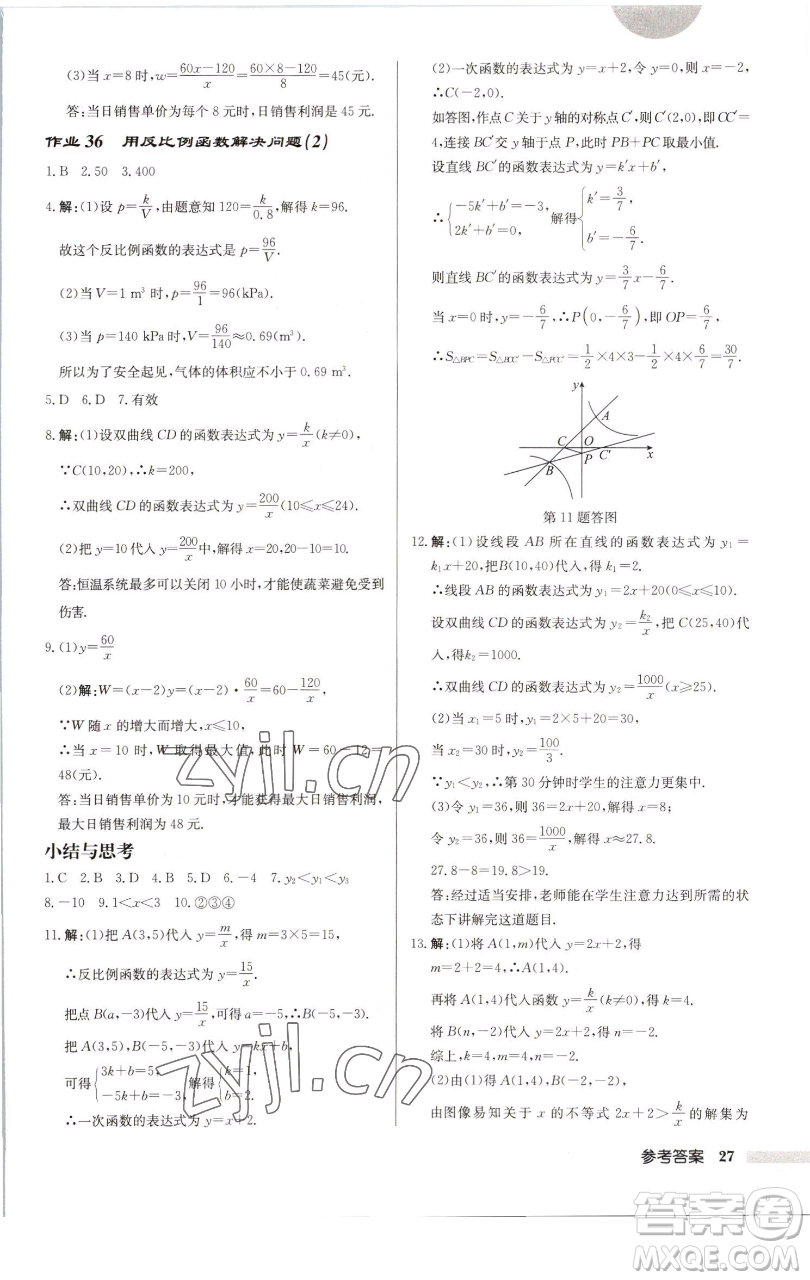 (3)当 x=8 时,w=(60x-120)/x=(60×8-120)/8=45(元).
答:当日销售单价为每个 8 元时,日销售利润是 45 元.
作业 36 用反比例函数解决问题(2)
1.B 2.50 3.400
4.解:(1)设 p=k/V,由题意知 120=k/0.8,解得 k=96.
故这个反比例函数的表达式是 p=96/V.
(2)当 V=1 m³ 时,p=96/1=96(kPa).
(3)当 p=140 kPa 时,V=96/140≈0.69(m³).
所以为了安全起见,气体的体积应不小于 0.69 m³.
5.D 6.D 7.有效
8.解:(1)设双曲线 CD 的函数表达式为 y=k/x(k≠0),
∵C(10,20),∴k=200,
∴双曲线 CD 的函数表达式为 y=200/x(10≤x≤24).
(2)把 y=10 代入 y=200/x 中,解得 x=20,20-10=10.
答:恒温系统最多可以关闭 10 小时,才能使蔬菜避免受到
伤害.
9.(1)y=60/x
(2)解:W=(x-2)y=(x-2)·60/x=60-120/x,
∵W 随 x 的增大而增大,x≤10,
∴当 x=10 时,W 取得最大值,此时 W=60-12=
48(元).
答:当日销售单价为 10 元时,才能获得最大日销售利润,
最大日销售利润为 48 元.
小结与思考
1.C 2.B 3.D 4.B 5.D 6.-4 7.y₂<y₁<y₃
8.-10 9.1<x<3 10.②③④
11.解:(1)把 A(3,5)代入 y=m/x,得 m=3×5=15,
∴反比例函数的表达式为 y=15/x.
把点 B(a,-3)代入 y=15/x,可得 a=-5,∴B(-5,-3).
把 A(3,5),B(-5,-3)代入 y=kx+b,
可得{3k+b=5, -5k+b=-3. 解得{k=1, b=2.
∴一次函数的表达式为 y=x+2.
(2)一次函数的表达式为 y=x+2,令 y=0,则 x=-2,
∴C(-2,0).
如答图,作点 C 关于 y 轴的对称点 C′,则 C′(2,0),即 CC′=
4,连接 BC′交 y 轴于点 P,此时 PB+PC 取最小值.
设直线 BC′的函数表达式为 y=k′x+b′,
∴{-5k′+b′=-3, 2k′+b′=0, 解得{k′=3/7, b′=-6/7.
则直线 BC′的函数表达式为 y=3/7x-6/7.
当 x=0 时,y=-6/7,∴P(0,-6/7),即 OP=6/7,
∴S△BPC=S△BCC′-S△PCC′=1/2×4×3-1/2×4×6/7=30/7.
y
A
C O
C′ x
P
B
第 11 题答图
12.解:(1)设线段 AB 所在直线的函数表达式为 y₁=
k₁x+20,把B(10,40)代入,得 k₁=2.
∴线段 AB 的函数表达式为 y₁=2x+20(0≤x≤10).
设双曲线 CD 的函数表达式为 y₂=k₂/x,把 C(25,40)代
入,得k₂=1000.
∴双曲线 CD 的函数表达式为 y₂=1000/x(x≥25).
(2)当 x₁=5 时,y₁=2×5+20=30,
当 x₂=30 时,y₂=100/3.
∵y₁<y₂,∴第 30 分钟时学生的注意力更集中.
(3)令 y₁=36,则 36=2x+20,解得 x=8;
令 y₂=36,则 36=1000/x,解得 x≈27.8.
27.8-8=19.8>19.
答:经过适当安排,老师能在学生注意力达到所需的状
态下讲解完这道题目.
13.解:(1)将 A(1,m)代入 y=2x+2,得
m=2+2=4,
再将 A(1,4)代入函数 y=k/x(k≠0),得 k=4.
将 B(n,-2)代入,得 n=-2.
综上,k=4,m=4,n=-2.
(2)由(1)得 A(1,4),B(-2,-2),
由图像易知关于 x 的不等式 2x+2>k/x 的解集为
参考答案 27
zyjl.cn
zyjl.cn
答案卷
MXQE.COM